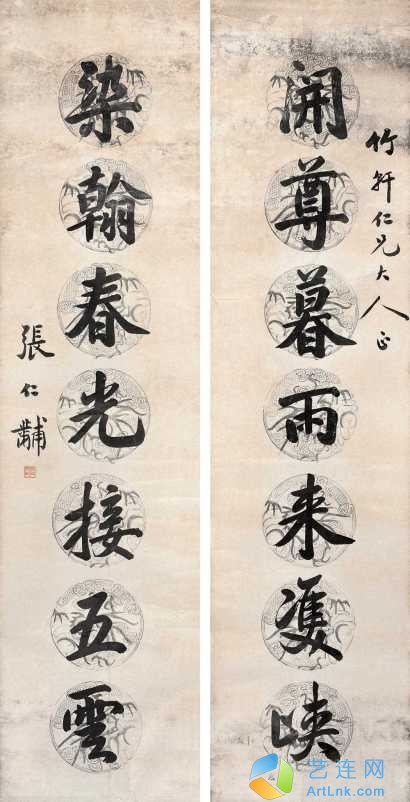 竹軒仁兄大人正
開尊暮雨来雙峽
染翰春光接五雲
張仁黼
艺连网
ArtLnk.com